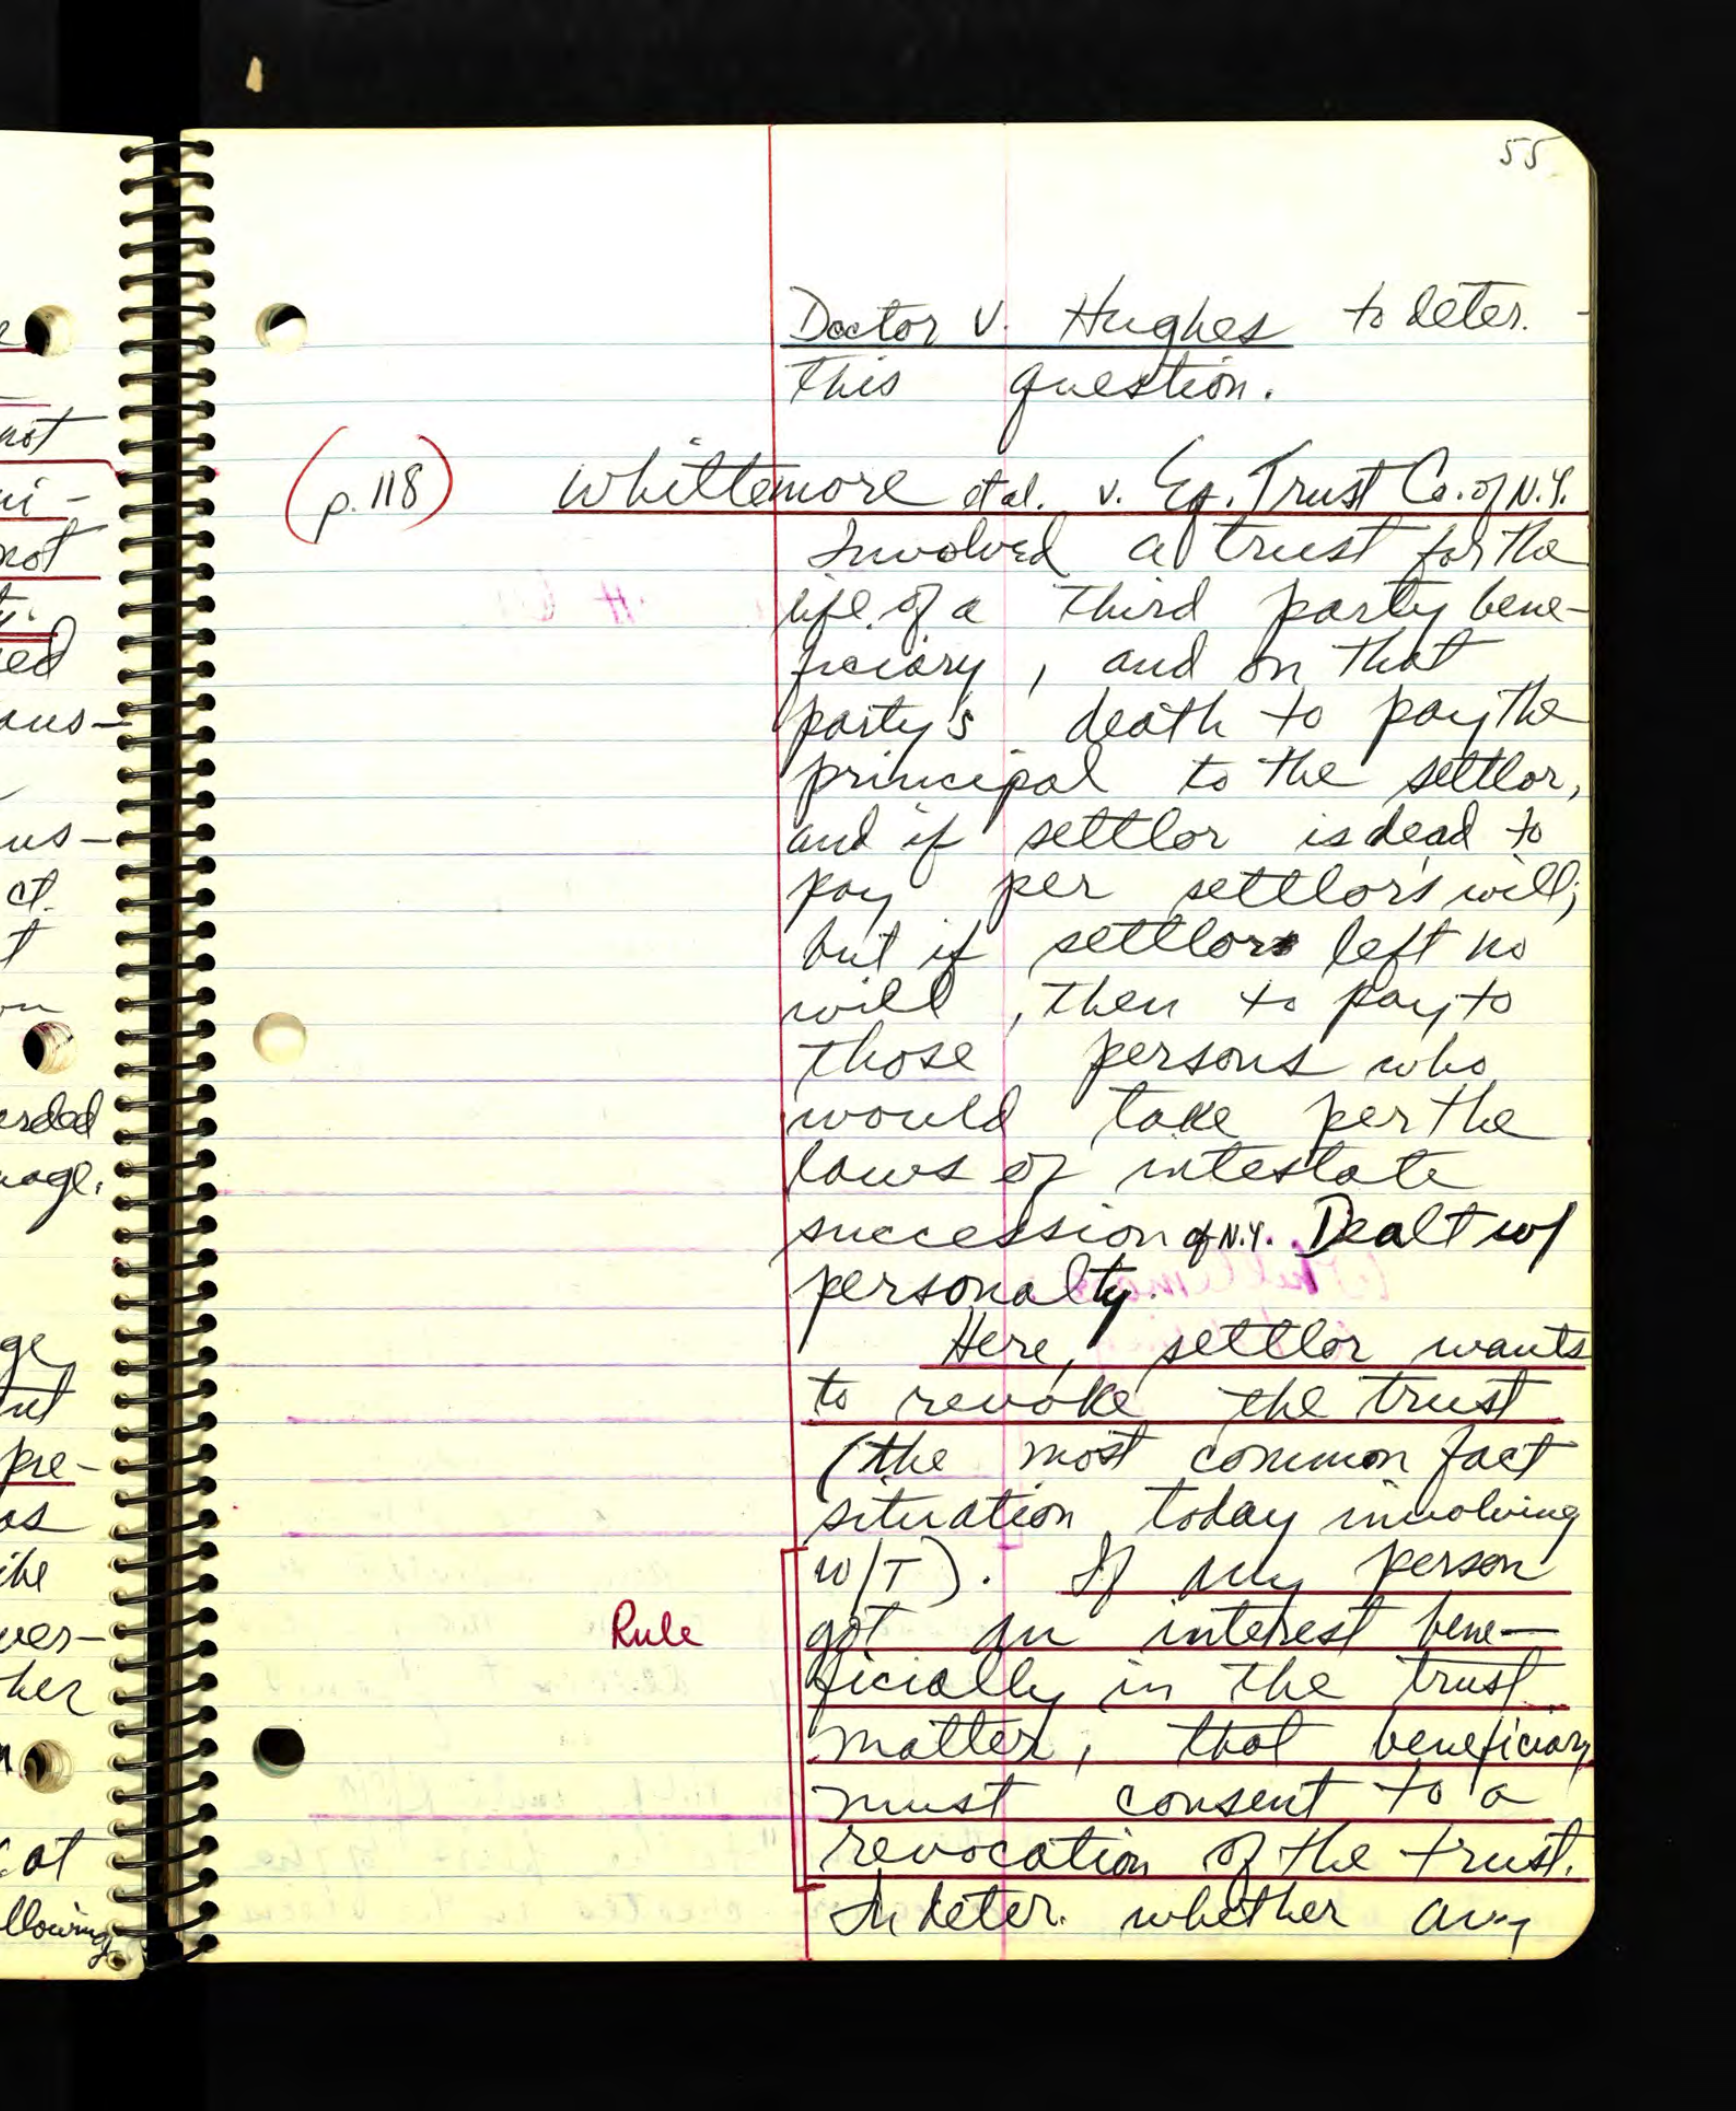 55
Doctor v. Hughes to deter.
this question.
(p. 118) Whittemore et al. v. Eq. Trust Co. of N.Y.
Involved a trust for the
life of a third party bene-
ficiary, and on that
party's death to pay the
principal to the settlor,
and if settlor is dead to
pay per settlor's will;
but if settlor left no
will, then to pay to
those persons who
would take per the
laws of intestate
succession of N.Y. Dealt w/
personalty.
Here, settlor wants
to revoke the trust
(the most common fact
situation today involving
W/T). If any person
Rule got an interest bene-
ficially in the trust
matter, that beneficiary
must consent to a
revocation of the trust.
In deter. whether any
not
not
ed
ous-
us-
ct.
t
ge
pre-
os
ver-
her
ot
llowing